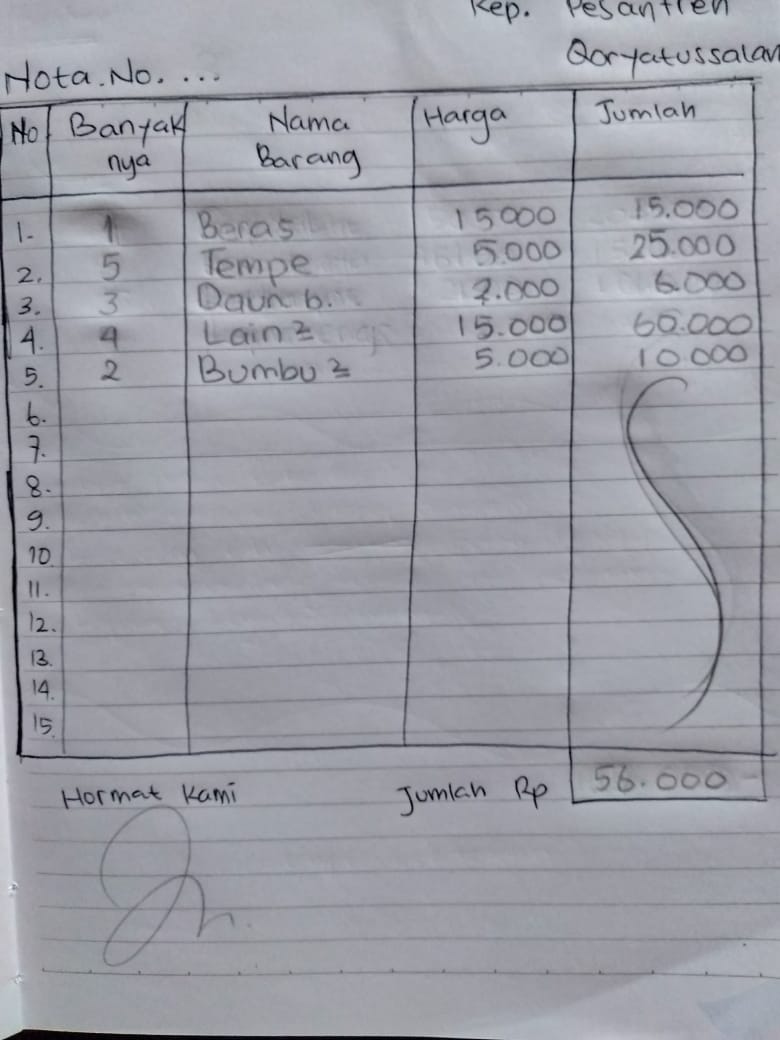 Kep. Pesantren
Qoryatussalam
Nota.No. ...
No Banyak nya Nama Barang Harga Jumlah
1. 1 Beras 15000 15.000
2. 5 Tempe 5.000 25.000
3. 3 Daun b. 2.000 6.000
4. 4 Lain2 15.000 60.000
5. 2 Bumbu2 5.000 10.000
6.
7.
8.
9.
10
11.
12.
13.
14.
15.
Hormat Kami Jumlah Rp 56.000